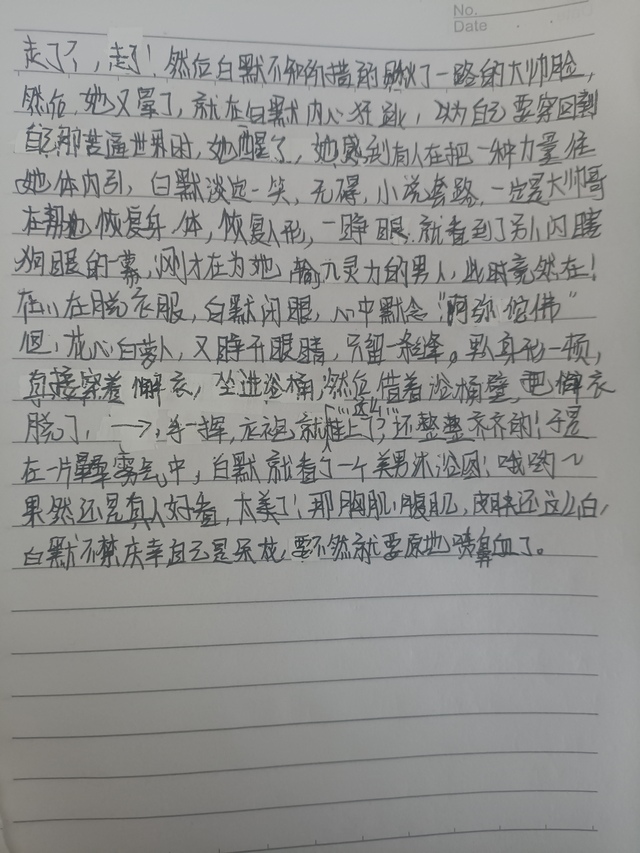 No.
Date
走了了，走了！然后白默不知所措的盯了一路的大帅脸，
然后，她又晕了，就在白默内心狂跳，以为自己要穿回到
自己那苦逼世界时，她醒了，她感到有人在把一种力量往
她体内引，白默淡定一笑，无碍，小说套路，一定是大帅哥
在帮她恢复身体，恢复人形，一睁眼，就看到了另人闪瞎
狗眼的一幕，刚才在为她输入灵力的男人，此时竟然在！
在！！在脱衣服，白默闭眼，心中默念“阿弥佗佛”
但，花心白萝卜，又睁开眼睛，只留一条缝。男身形一顿，
直接穿着亵衣，坐进浴桶，然后借着浴桶壁，把亵衣
脱了，一手一挥，衣袍就挂上了，还整整齐齐的！于是
在一片雾气中，白默就看了一个美男沐浴图！哦哟～
果然还是真人好看，太美了！那胸肌！腹肌，皮肤还这么白，
白默不禁庆幸自己是朵花，要不然就要原地喷鼻血了。